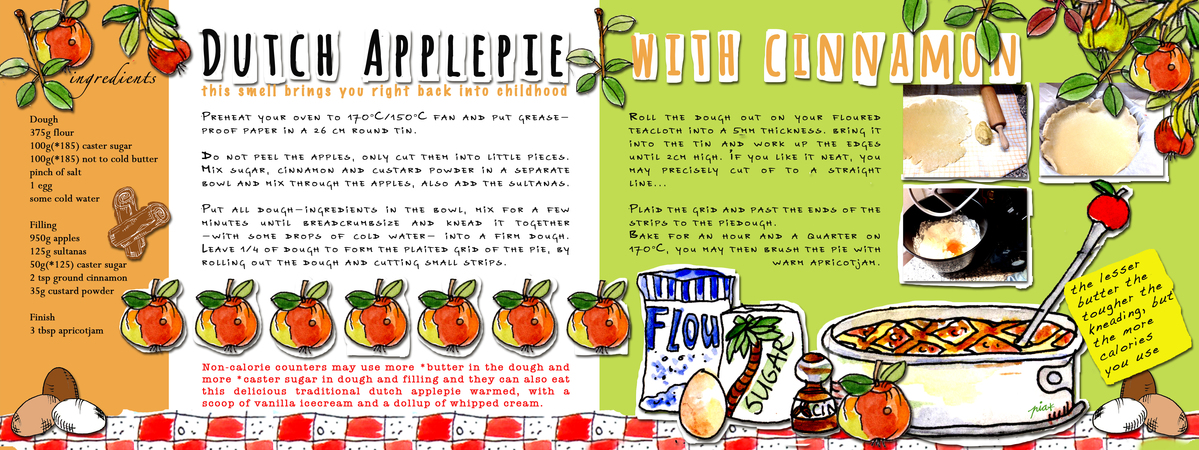 ingredients
Dough
375g flour
100g(*185) caster sugar
100g(*185) not to cold butter
pinch of salt
1 egg
some cold water
Filling
950g apples
125g sultanas
50g(*125) caster sugar
2 tsp ground cinnamon
35g custard powder
Finish
3 tbsp apricotjam
DUTCH APPLEPIE WITH CINNAMON
this smell brings you right back into childhood
PREHEAT YOUR OVEN TO 170°C/150°C FAN AND PUT GREASE-
PROOF PAPER IN A 26 CM ROUND TIN.
DO NOT PEEL THE APPLES, ONLY CUT THEM INTO LITTLE PIECES.
MIX SUGAR, CINNAMON AND CUSTARD POWDER IN A SEPARATE
BOWL AND MIX THROUGH THE APPLES, ALSO ADD THE SULTANAS.
PUT ALL DOUGH-INGREDIENTS IN THE BOWL, MIX FOR A FEW
MINUTES UNTIL BREADCRUMBSIZE AND KNEAD IT TOGETHER
-WITH SOME DROPS OF COLD WATER- INTO A FIRM DOUGH.
LEAVE 1/4 OF DOUGH TO FORM THE PLAITED GRID OF THE PIE, BY
ROLLING OUT THE DOUGH AND CUTTING SMALL STRIPS.
Non-calorie counters may use more *butter in the dough and
more *caster sugar in dough and filling and they can also eat
this delicious traditional dutch applepie warmed, with a
scoop of vanilla icecream and a dollup of whipped cream.
ROLL THE DOUGH OUT ON YOUR FLOURED
TEACLOTH INTO A 5MM THICKNESS. BRING IT
INTO THE TIN AND WORK UP THE EDGES
UNTIL 2CM HIGH. IF YOU LIKE IT NEAT, YOU
MAY PRECISELY CUT OF TO A STRAIGHT
LINE...
PLAID THE GRID AND PAST THE ENDS OF THE
STRIPS TO THE PIEDOUGH.
BAKE FOR AN HOUR AND A QUARTER ON
170°C, YOU MAY THEN BRUSH THE PIE WITH
WARM APRICOTJAM.
FLOU
SUGAR
CIN
pia+
the lesser
butter the
tougher the
kneading, but
the more
calories
you use